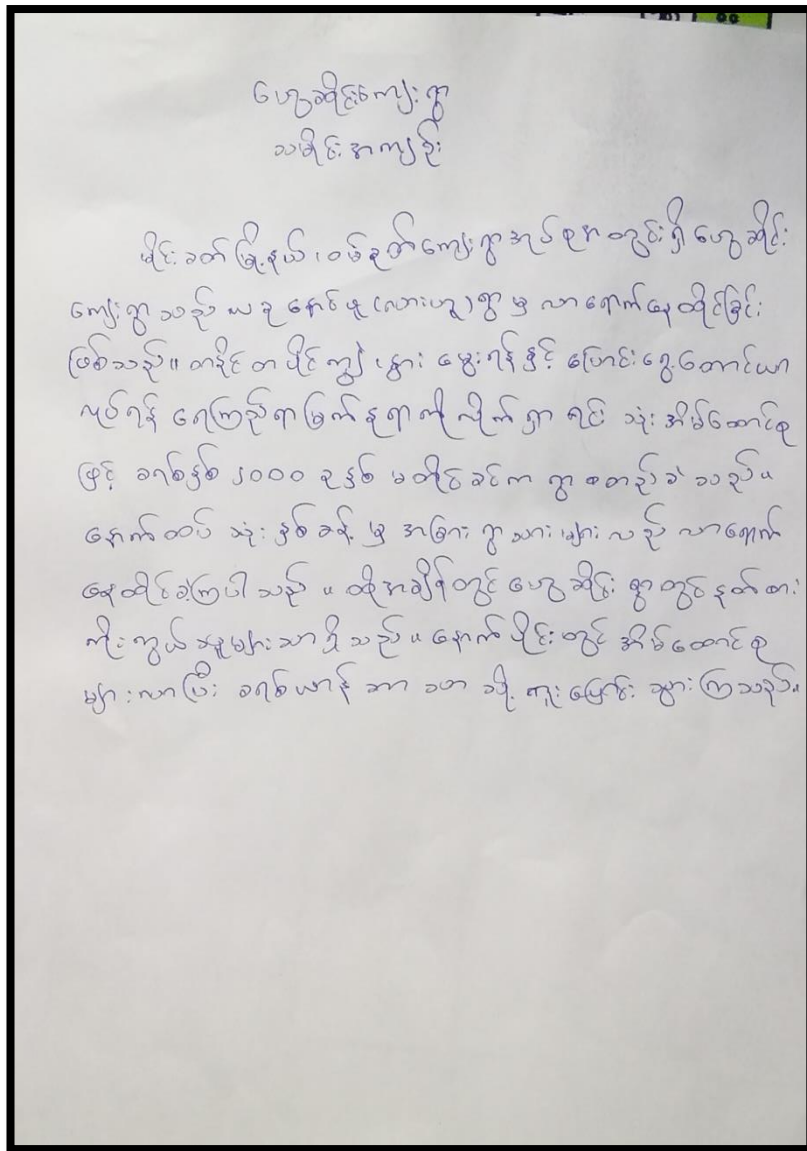 ဟွေ့ဆိုင်းကျေးရွာ
သမိုင်းအကျဉ်း
မိုင်းခတ်မြို့နယ်၊ ဝမ်နတ်ကျေးရွာအုပ်စုအတွင်းရှိ ဟွေ့ဆိုင်း
ကျေးရွာသည် ယခု နောင်ဖူ (လားဟူ) ရွာမှ လာရောက်နေထိုင်ခြင်း
ဖြစ်သည်။ တနိုင်တပိုင် ကျွဲ၊ နွား မွေးရန်နှင့် ပြောင်းရွှေ့တောင်ယာ
လုပ်ရန် ရေကြည်ရာမြက်နုရာကို လိုက်ရှာရင်း သုံးအိမ်ထောင်စု
ဖြင့် ခရစ်နှစ် ၂၀၀၀ ခုနှစ် မတိုင်ခင်က ရွာစတည်ခဲ့သည်။
နောက်ထပ် သုံးနှစ်ခန့်မှ အခြားရွာသားများလည် လာရောက်
နေထိုင်ခဲ့ကြပါသည်။ ထိုအချိန်တွင် ဟွေ့ဆိုင်းရွာတွင် နတ်စား
ကိုးကွယ်သူများသာရှိသည်။ နောက်ပိုင်းတွင် အိမ်ထောင်စု
များလာပြီး ခရစ်ယာန်ဘာသာသို့ ကူးပြောင်းသွားကြသည်။